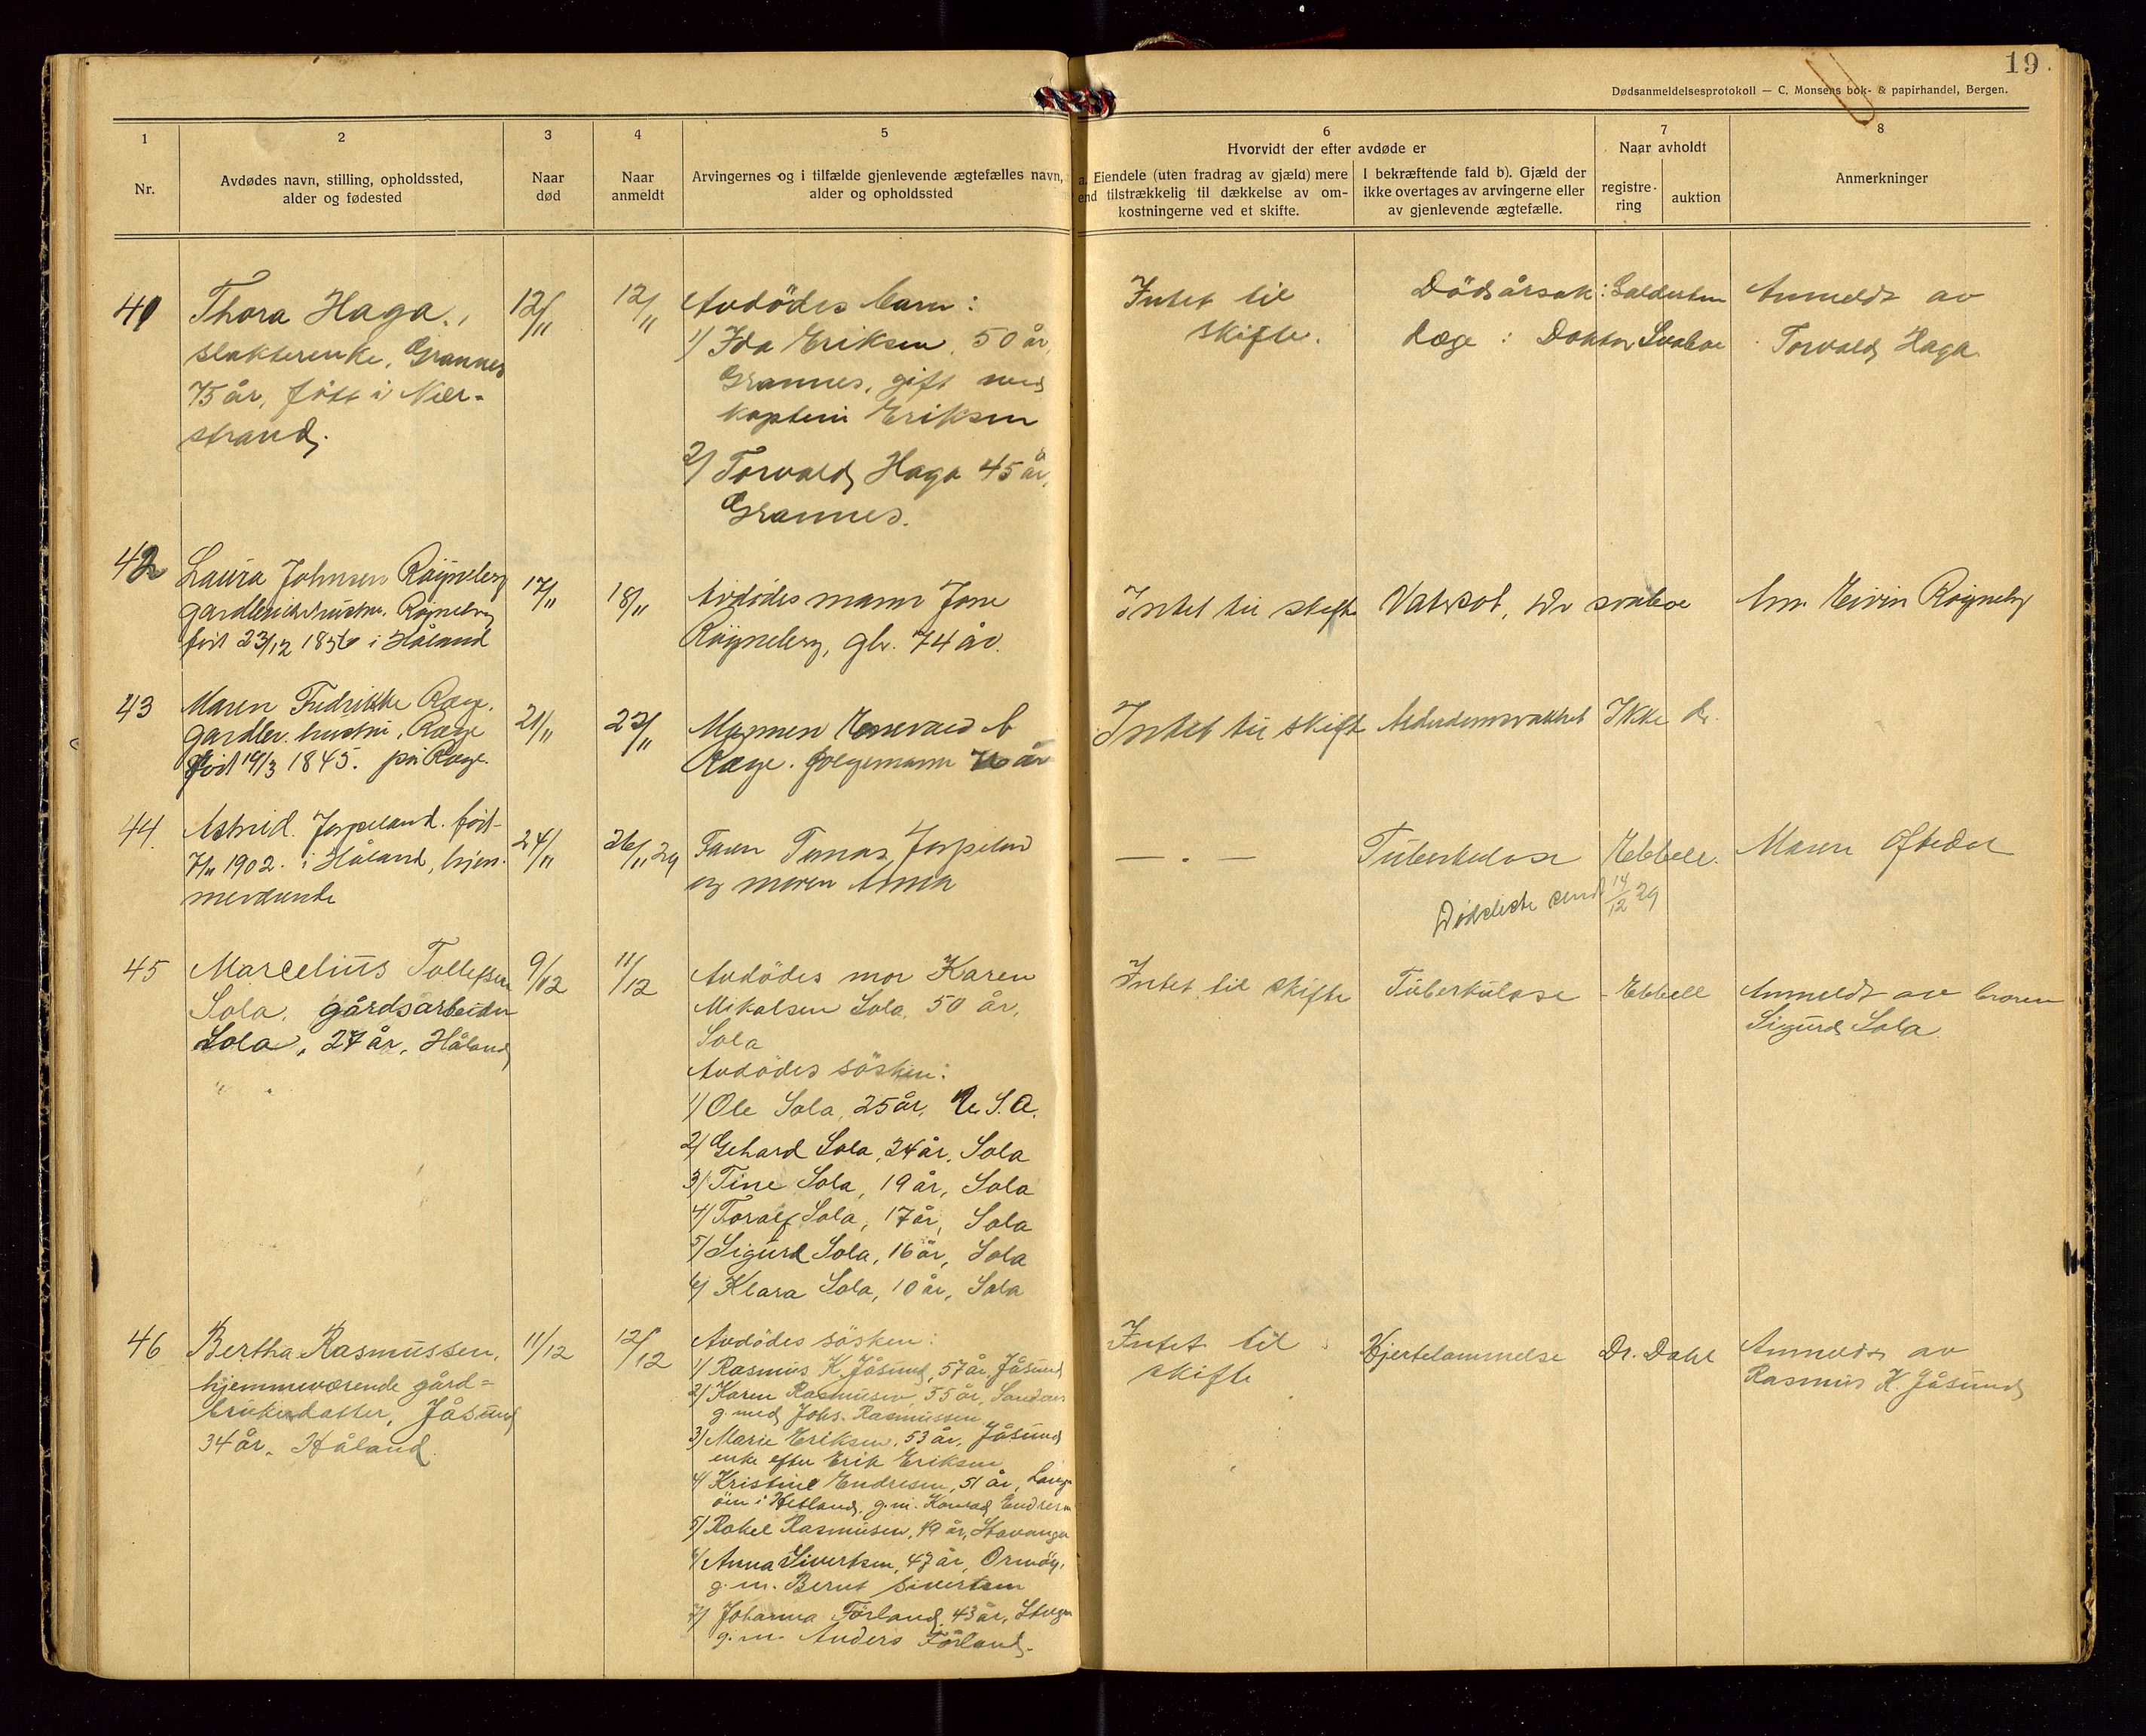 19
Dødsanmeldelsesprotokoll — C. Monsens bok- & papirhandel, Bergen.
1
Nr.
2
Avdødes navn, stilling, opholdssted,
alder og fødested
3
Naar
død
4
Naar
anmeldt
5
Arvingernes og i tilfælde gjenlevende ægtefælles navn,
alder og opholdssted
6
Hvorvidt der efter avdøde er
a. Eiendele (uten fradrag av gjæld) mere
end tilstrækkelig til dækkelse av om-
kostningerne ved et skifte.
I bekræftende fald b). Gjæld der
ikke overtages av arvingerne eller
av gjenlevende ægtefælle.
7
Naar avholdt
registre-
ring
auktion
8
Anmerkninger
41
Thora Haga,
slakterenke, Grannes
75 år, fött i Nær-
strand.
12/11
12/11
Avdödes barn:
1/ Ida Eriksen, 50 år,
Grannes, gift med
kaptein Eriksen
2/ Torvald Haga 45 år,
Grannes.
Intet til
skifte.
Dödsårsak:
Læge: Doktor Svaboe
Anmeldt av
Torvald Haga.
42
Laura Johnsen Röyneberg
hustru. Röyneberg
født 23/12 1856 i Håland
17/11
18/11
Avdødes mann Jone
Röyneberg, gbr. 74 år.
Intet til skifte
Vatsot, Dr Svaboe
Anm. Eivin Röyneberg
43
Maren Fredrikke Ræge.
gardbr. hustru, Ræge
født 19/3 1845. på Ræge.
21/11
22/11
Mannen
Ræge. Følgemann
Intet til skifte
Alderdomsvakhet
Ikke dr.
44.
Astrid Jørpeland. født
7/11 1902. i Håland, hjem
meværende
24/11
26/11 29
Faren Tomas Jørpeland
og moren Anna
— . —
Tuberkulose
Ebbell.
Maren Oftedal
Dødsliste send 14/12 29
45
Marcelius Tollefsen
Sola, gårdsarbeider
Sola, 27 år, Håland
9/12
11/12
Avdödes mor Karen
Mikalsen Sola, 50 år,
Sola
Avdödes söskin:
1/ Ole Sola, 25 år, U.S.A.
2/ Gehard Sola, 24 år, Sola
3/ Tine Sola, 19 år, Sola
4/ Toralf Sola, 17 år, Sola
5/ Sigurd Sola, 16 år, Sola
6/ Klara Sola, 10 år, Sola
Intet til skifte
Tüberkulose
- Ebbell
Anmeldt av broren
Sigurd Sola.
46
Bertha Rasmussen,
hjemmeværende gård-
brukerdatter, Jåsund
34 år. Håland.
11/12
12/12
Avdödes sösken:
1/ Rasmus K. Jåsund, 57 år, Jåsund
2/ Karen Rasmusen, 55 år,
g. med Johs. Rasmussen
3/ Marie Eriksen, 53 år, Jåsund
enke efter Erik Eriksen
4/ Kristine Endresen, 51 år,
i Hetland, g.m. Konrad Endresen
5/ Rakel Rasmusen, 49 år, Stavanger
6/ Anna Sivertsen, 47 år, Ormöy,
g.m. Bernt Sivertsen
7/ Johanna Förland, 43 år,
g.m. Anders Förland.
Intet til
skifte
Hjertelammelse
Dr. Dahl
Anmeldt av
Rasmus K. Jåsund